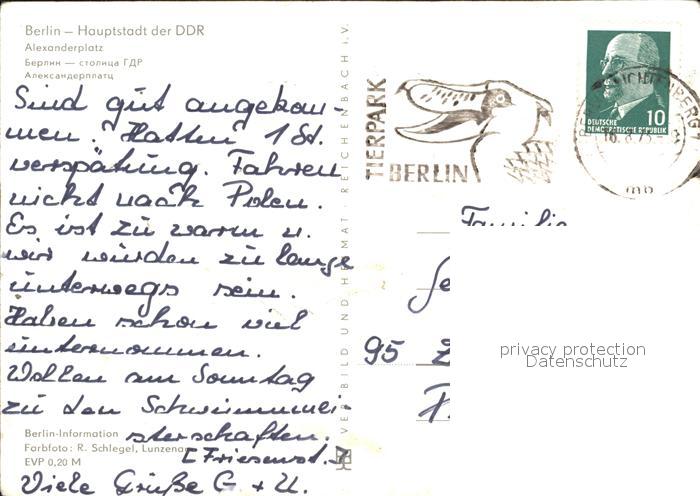 Berlin — Hauptstadt der DDR
Alexanderplatz
Берлин — столица ГДР
Александерплатц
Sind gut angekom-
men. Hatten 1 St.
verspätung. Fahren
nicht nach Polen.
Es ist zu warm u.
wir würden zu lange
unterwegs sein.
Haben schon viel
unternommen.
Wollen am Sonntag
zu den Schwimmmei-
sterschaften.
[Friesenst.]
Viele Grüße G. + U.
Berlin-Information
Farbfoto: R. Schlegel, Lunzenau
EVP 0,20 M
VERLAG BILD UND HEIMAT · REICHENBACH i. V.
TIERPARK
BERLIN
10
DEUTSCHE
DEMOKRATISCHE REPUBLIK
Familie
95
privacy protection
Datenschutz